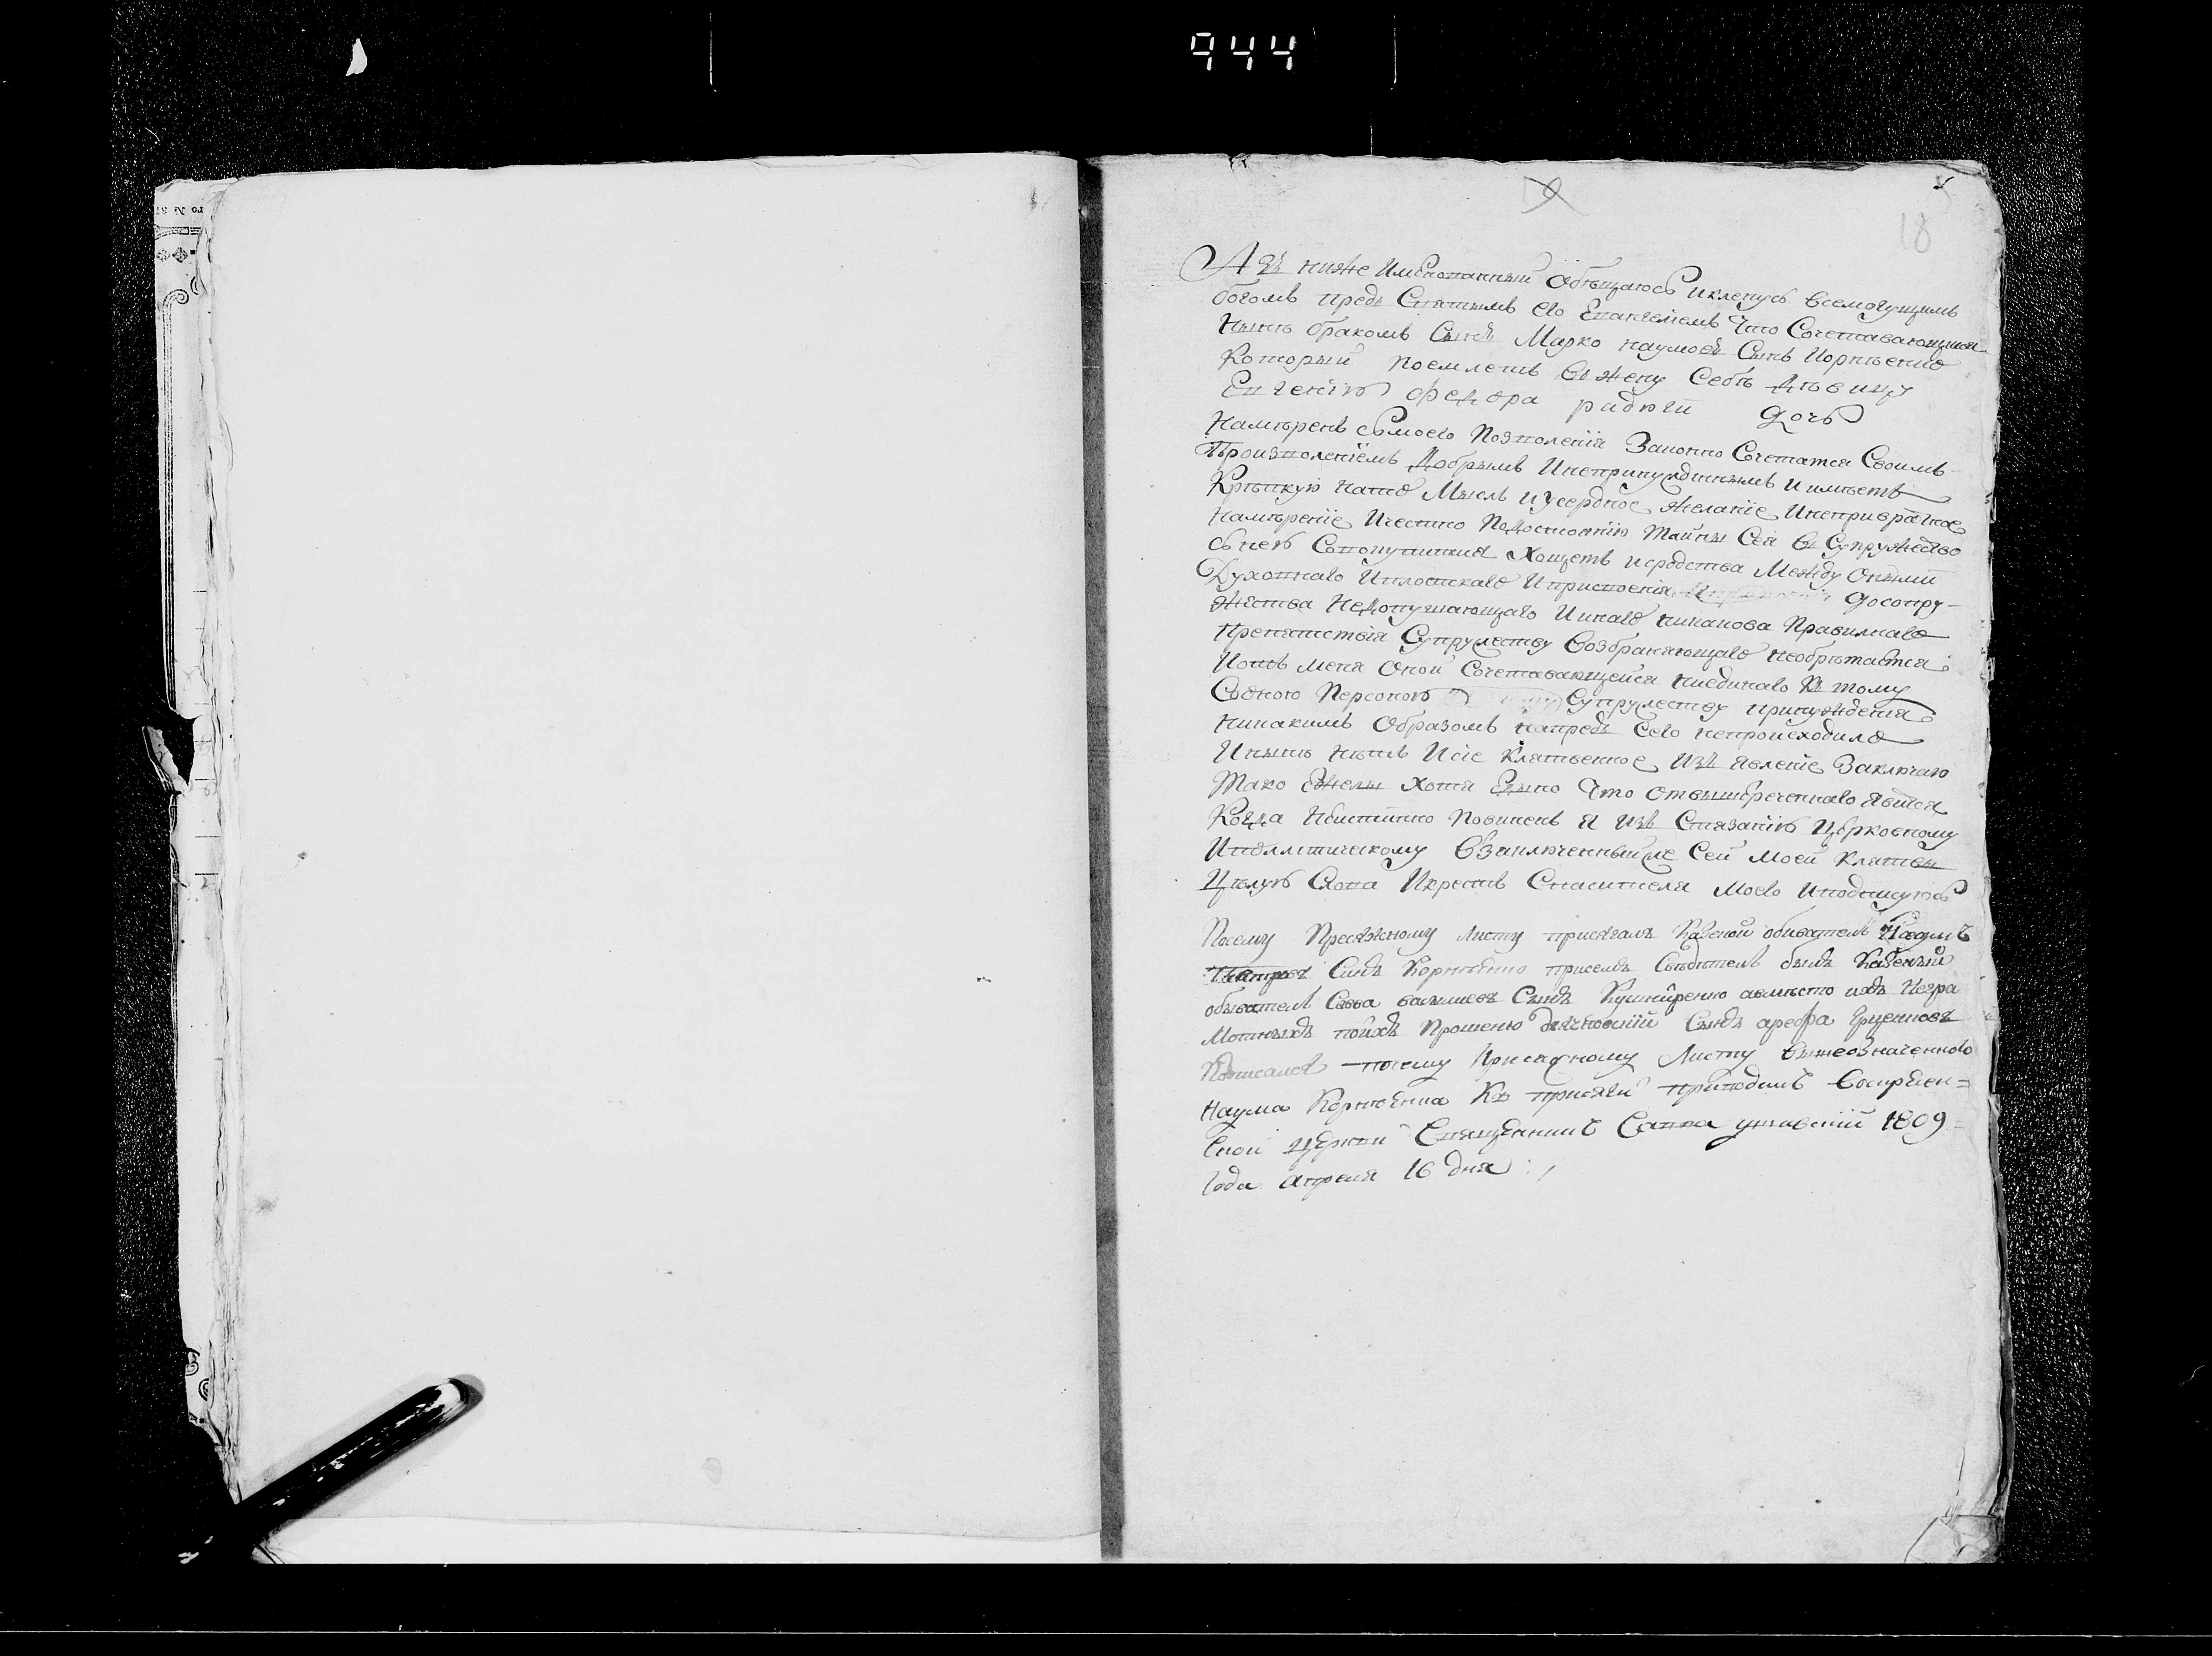 944
18
Азъ ниже Именованный Обѣщаюсь иклянусь всемогущимъ
богомъ предъ Святымъ его Евангелиемъ Что Сочетавающийся
Нынѣ бракомъ Сынъ Марко наумовъ Сынъ Корнѣенко
Который поемлетъ въ жену Себѣ дѣвицу
Евгенію федора дочь
Намѣренъ самоего Позволенія Законно Сочетатся Своимъ
Произволеніемъ Добрымъ Инепринужденнымъ иимѣетъ
Крѣпкую на то Мысль иусердное желаніе Инепривратное
Намѣреніе Ичестно Тайны Сея въ Супружество
снею Совокупитися Хощетъ исродства Между Оными
Духовнаго Иплотскаго Иприсвоенія досопру-
жества Недопущающаго Иинаго никакова Правилнаго
Препятствія Супружеству Возбраняющаго Необрѣтается
Иотъ меня Оной Сочетавающейся ниединаго Къ тому
Соеною Персоною Супружеству принужденія
Никакимъ Образомъ напредъ Сего непроисходило
Инынѣ нѣтъ Исіе Клятвенное Изъ явленіе Заключаю
Тако Ежелы Хотя Едыно Что отвышереченнаго явится
Когда Неистинно Повиненъ я Изъ Стязанію Церковному
Иполитическому Взаключенный же Сей Моей Клятвы
Цѣлую Слова Икрестъ Спасителя Моего Иподписуюсь
Посему Присяжному листу присягалъ Казеной обиватель Наумъ
Сынъ Корнѣенко присемъ Свѣдѣтель былъ Казеный
обыватель Сава Сынъ Кушнѣренко авмѣсто ихъ Негра
Мотныхъ поихъ Прошению дячковский Сынъ
Подписался посему Присяжному Листу вышеозначенного
Наума Корнѣенка Къ присяги приводилъ Воскресен=
Ской Церкви Священникъ Савва 1809
Года апреля 16 дня